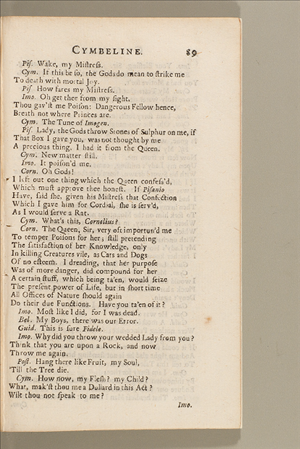 CYMBELINE. 89
Pis. Wake, my Mistress.
Cym. If this be so, the Gods do mean to strike me
To death with mortal Joy.
Pis. How fares my Mistress.
Imo. Oh get thee from my sight.
Thou gav'st me Poison: Dangerous Fellow hence,
Breath not where Princes are.
Cym. The Tune of Imogen.
Pis. Lady, the Gods throw Stones of Sulphur on me, if
That Box I gave you, was not thought by me
A precious thing. I had it from the Queen.
Cym. New matter still.
Imo. It poison'd me.
Corn. Oh Gods!
I left out one thing which the Queen confess'd,
Which must approve thee honest. If Pisanio
Have, said she, given his Mistress that Confection
Which I gave him for Cordial, she is serv'd,
As I would serve a Rat.
Cym. What's this, Cornelius?
Corn. The Queen, Sir, very oft importun'd me
To temper Poisons for her; still pretending
The satisfaction of her Knowledge, only
In killing Creatures vile, as Cats and Dogs
Of no esteem. I dreading, that her purpose
Was of more danger, did compound for her
A certain stuff, which being ta'en, would seize
The present power of Life, but in short time
All Offices of Nature should again
Do their due Functions. Have you ta'en of it?
Imo. Most like I did, for I was dead.
Bel. My Boys, there was our Error.
Guid. This is sure Fidele.
Imo. Why did you throw your wedded Lady from you?
Think that you are upon a Rock, and now
Throw me again.
Post. Hang there like Fruit, my Soul,
'Till the Tree die.
Cym. How now, my Flesh? my Child?
What, mak'st thou me a Dullard in this Act?
Wilt thou not speak to me?
Imo.